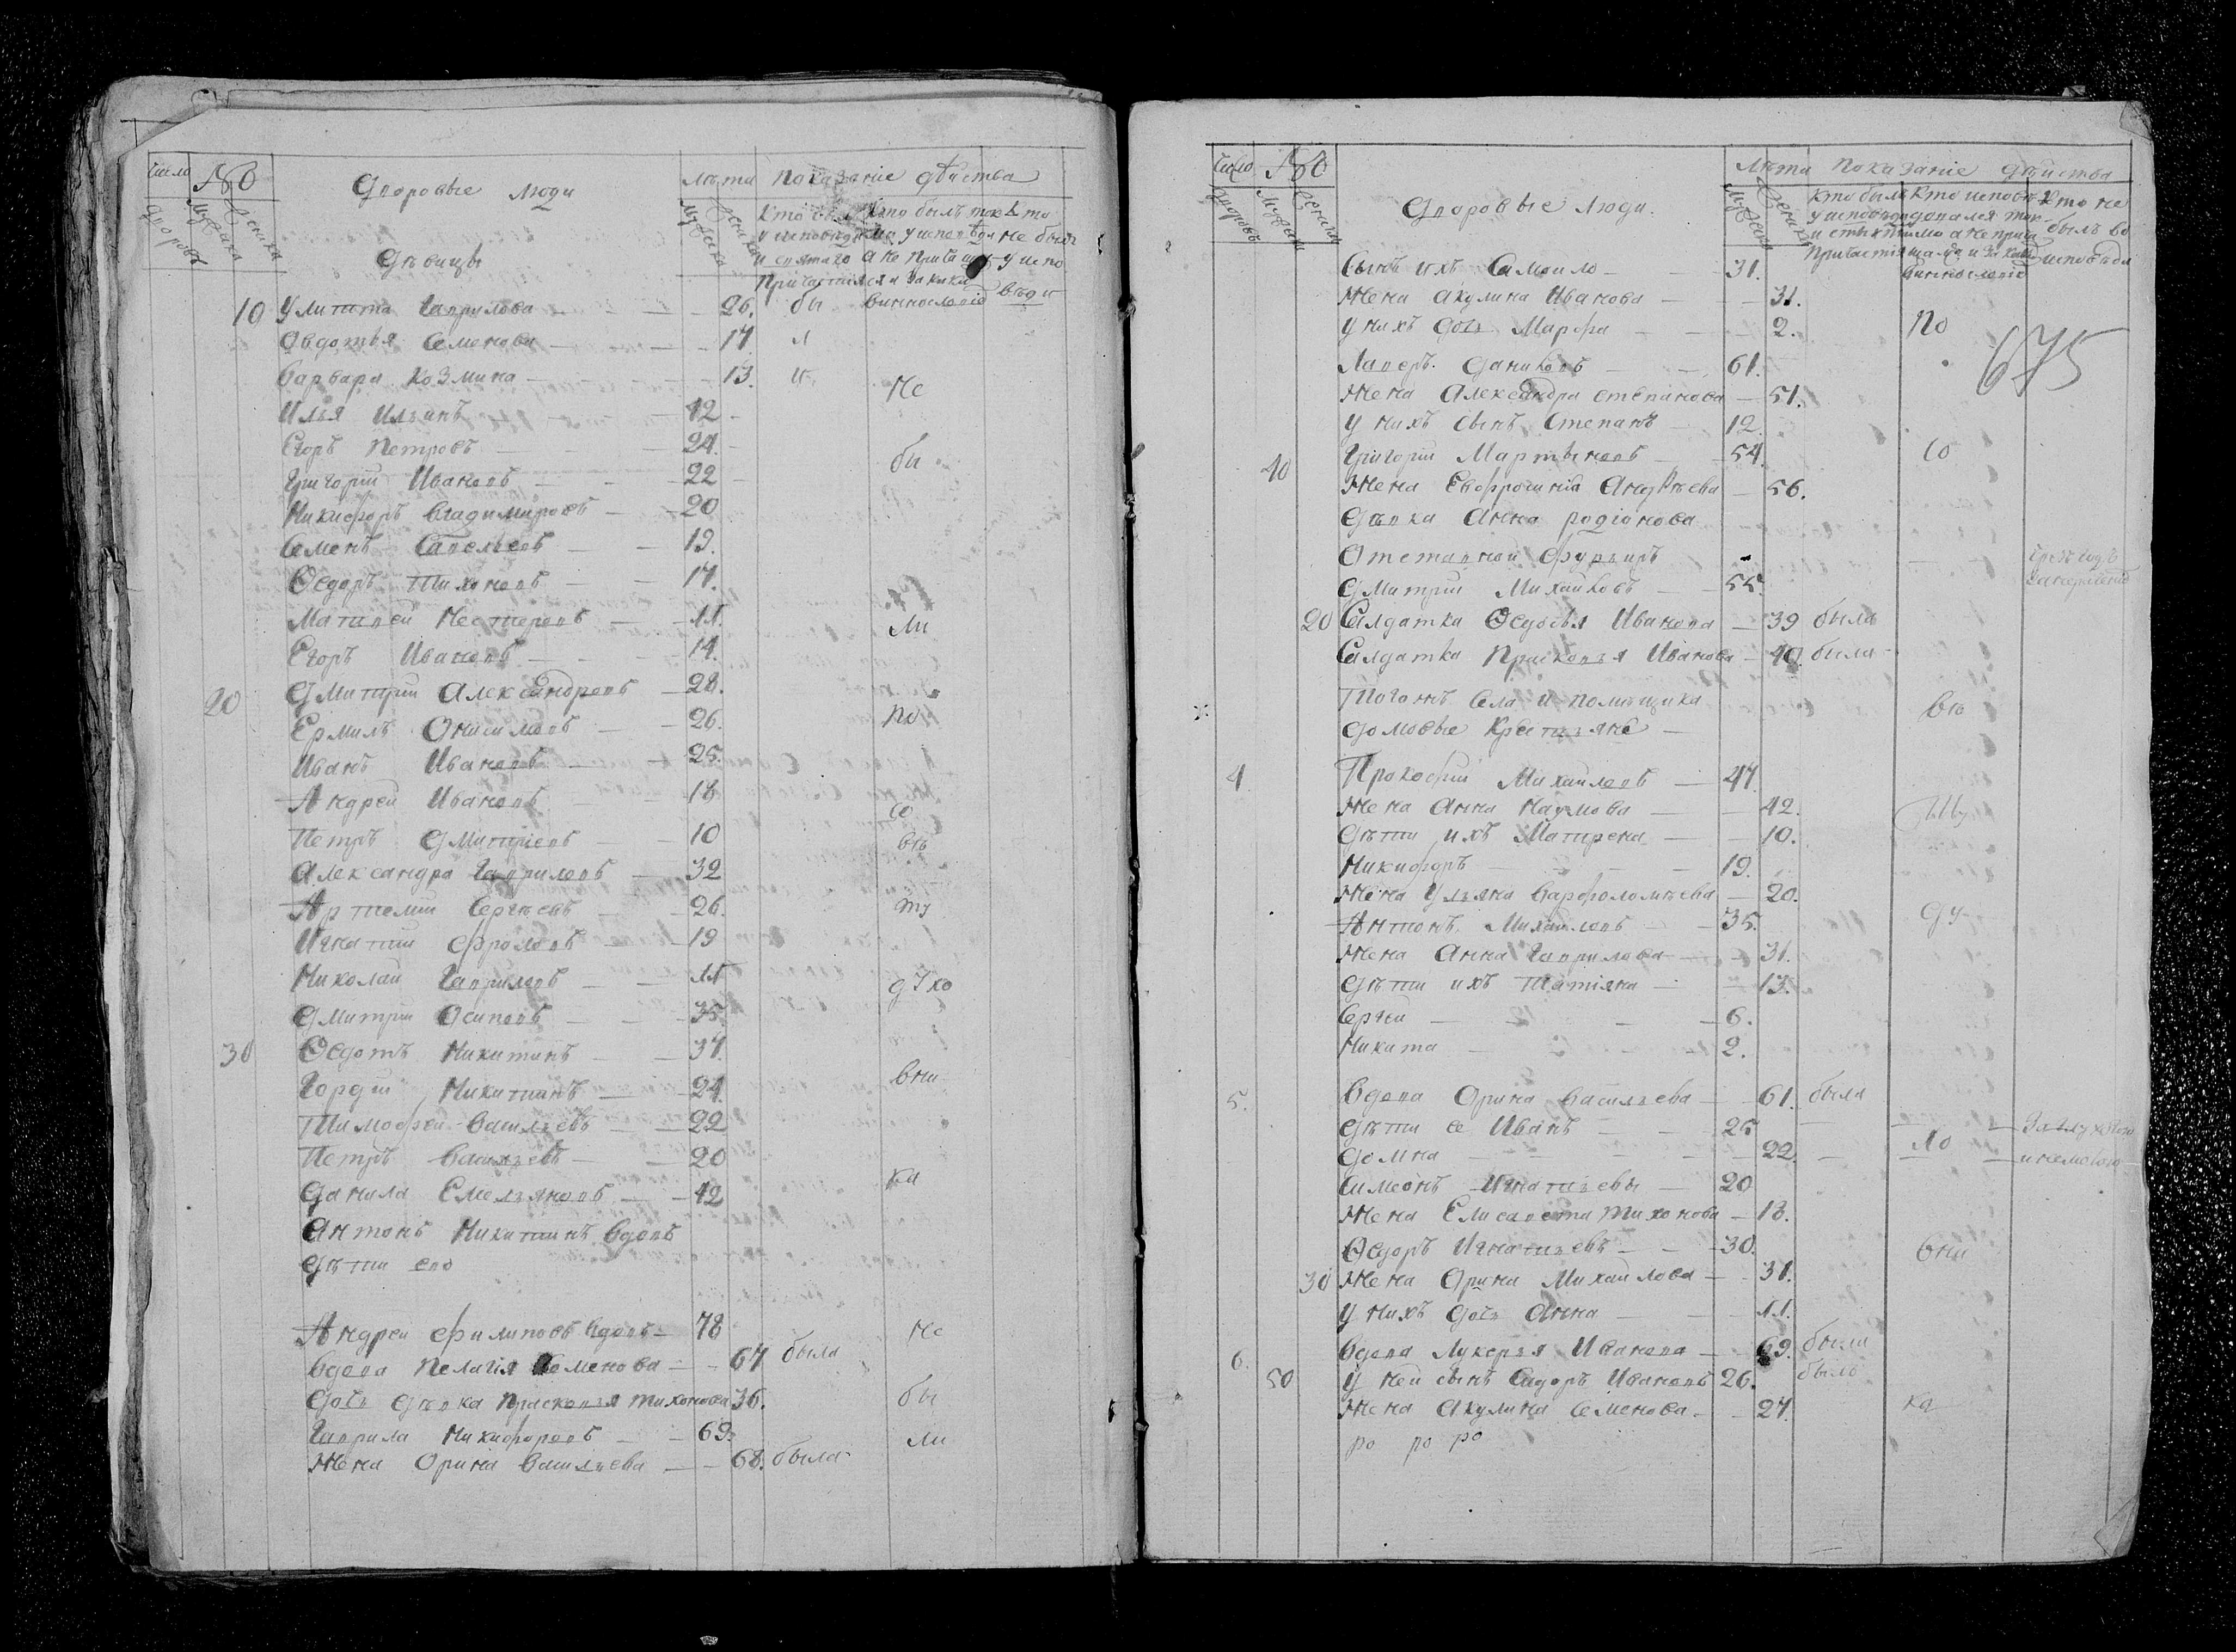 число № Дворовые люди Лѣта показаніе дѣйства
дворовъ мужеска женска мужеска женска
Дѣвицы
10 Улитта Гаврилова 26. бы
Овдотья Семенова 17 л
Варвара Козмина 13. и
не
Илья Ильинъ 12
Егоръ Петровъ 24.
бы
Григорий Ивановъ 22
Никифоръ Владимировъ 20
Семенъ Савельевъ 19.
Ѳедоръ Тихоновъ 17.
Матвей Нестеровъ 11.
ли
Егоръ Ивановъ 14.
20 Дмитрий Александровъ 28.
по
Ермилъ Онисимовъ 26.
Иванъ Ивановъ 25.
Андрей Ивановъ 18
со
Петръ Дмитриевъ 10
вѣ
Александра Гавриловъ 32
Артемий Сергѣевъ 26.
ту
Игнатий Фроловъ 19
Николай Гавриловъ 11
духо
Дмитрий Осиповъ 35.
30 Ѳедотъ Никитинъ 37.
Гордий Никитинъ 24.
вни
Тимофей Васильевъ 22
Петръ Васильевъ 20
ка
Данила Емельяновъ 12
Антонъ Никитинъ вдовъ
Дѣти ево
Андрей Филиповъ вдовъ 78
не
Вдова Пелагія Семенова 67 была
Дочь дѣвка Прасковья Тихонова 36.
бы
Гаврила Никифоровъ 69.
ли
Жена Орина Васильева 68. была
число № Дворовые люди. Лѣта показаніе дѣйства
дворовъ мужеска женска мужеска женска
Сынъ ихъ Самоило 31.
Жена Акулина Иванова 31.
У нихъ дочь Марфа 2. по
675
Лаверъ Даниловъ 61.
Жена Александра Степанова 51.
У нихъ сынъ Степанъ 12.
40 Григорий Мартыновъ 54. со
Жена Евфросинія Андрѣева 56.
Дѣвка Анна Родіонова
Отставной фурьиръ
Дмитрий Михайловъ 55.
20 Салдатка Ѳедосья Иванова 39 была
Салдатка Прасковья Иванова 40. была
Тогожъ села и помѣщика
вѣ
домовые крестьяне
4 Прокофий Михайловъ 47.
Жена Анна Наумова 42.
ту
Дѣти ихъ Матрена 10.
Никифоръ 19.
Жена Ульяна Варфоломѣева 20.
ду
Антонъ Михайловъ 35.
Жена Анна Гаврилова 31.
Дѣти ихъ Татіяна 13.
Сергѣй 6.
Никита 2.
5. Вдова Орина Васильева 61. была
Дѣти ее Иванъ 25
Домна 22.
Симеонъ Игнатьевы 20
Жена Елисавета Тихонова 18.
Ѳедоръ Игнатьевъ 30.
вни
30 Жена Орина Михайлова 31.
У нихъ дочь Анна 11.
6. Вдова Лукерья Иванова 69. была
50 У ней сынъ Сидоръ Ивановъ 26. былъ
Жена Акулина Семенова 27. ка
ро ро ро